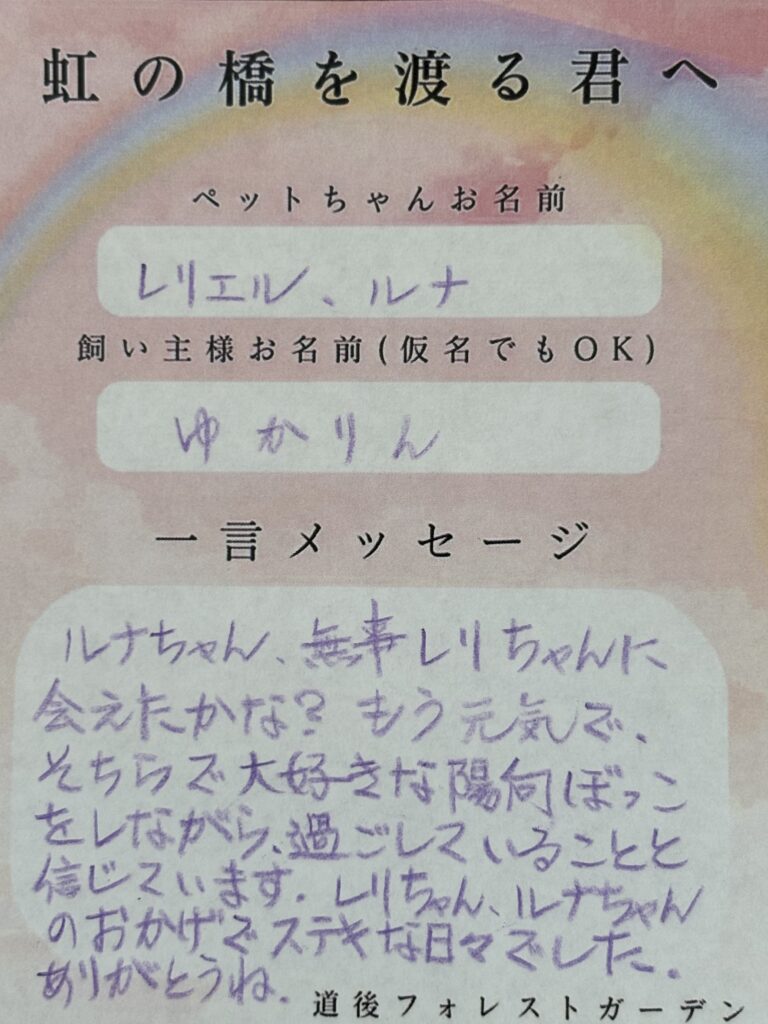 虹の橋を渡る君へ
ペットちゃんお名前
レリエル、ルナ
飼い主様お名前(仮名でもOK)
ゆかりん
一言メッセージ
ルナちゃん、無事レリちゃんに
会えたかな? もう元気で、
そちらで大好きな陽向ぼっこ
をしながら、過ごしていることと
信じています。レリちゃん、ルナちゃん
のおかげでステキな日々でした。
ありがとうね。
道後フォレストガーデン